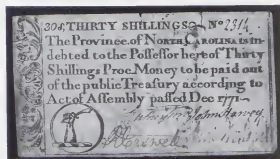 30s, THIRTY SHILLINGS No 2314
The Province, of NORTH CAROLINA is in-
debted to the Possessor hereof Thirty
Shillings Proc. Money to be paid out
of the public Treasury according to
Act of Assembly passed Dec 1771.
John Harvey